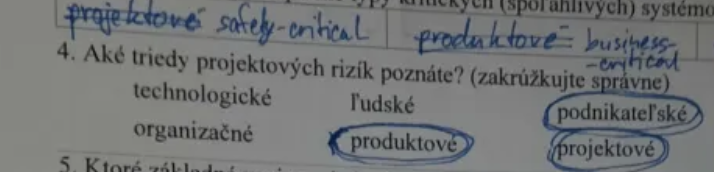 kritických (spoľahlivých) systémo
projektové safety-critical produktové = business-
-critical
4. Aké triedy projektových rizík poznáte? (zakrúžkujte správne)
technologické ľudské podnikateľské
organizačné produktové projektové
5. Ktoré